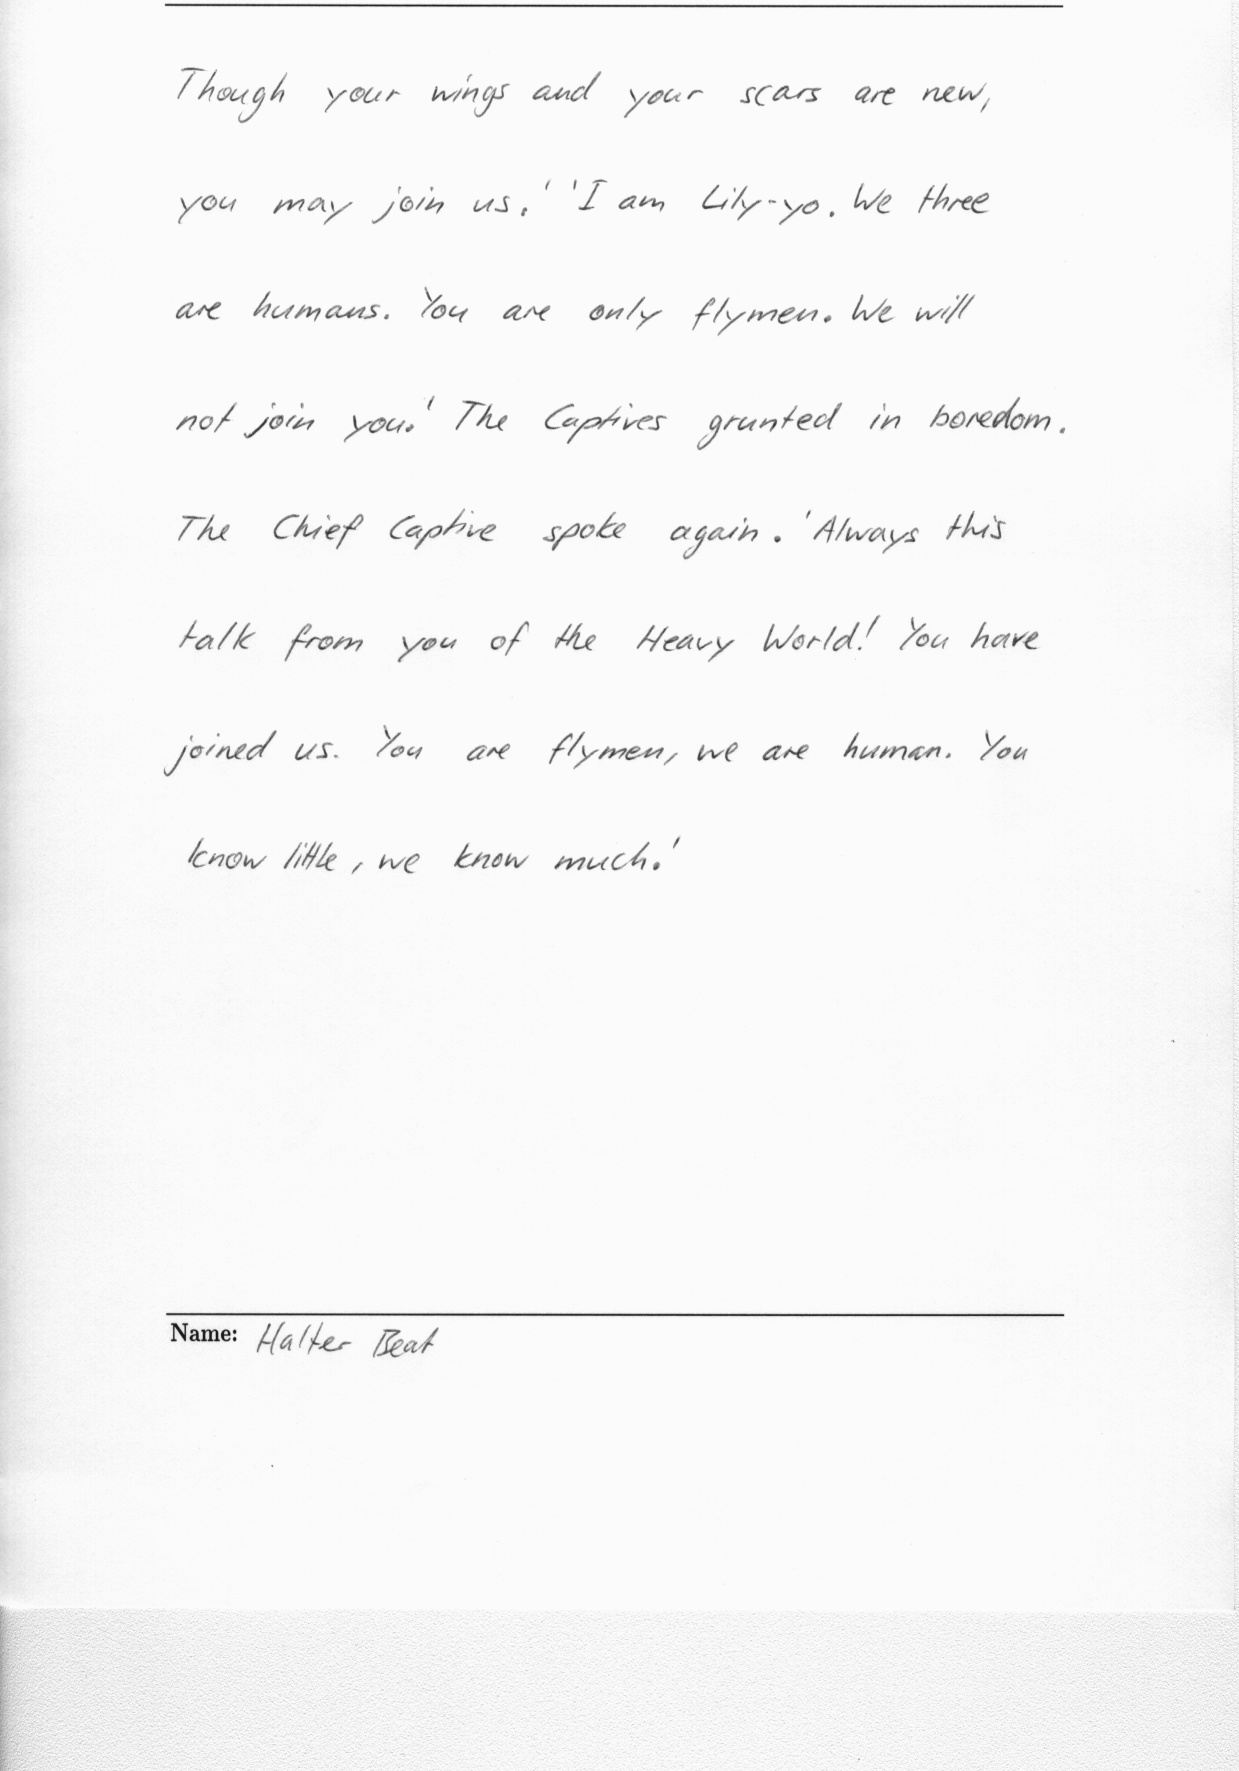 Though your wings and your scars are new,
you may join us.' 'I am Lily-yo. We three
are humans. You are only flymen. We will
not join you.' The Captives grunted in boredom.
The Chief Captive spoke again. 'Always this
talk from you of the Heavy World! You have
joined us. You are flymen, we are human. You
know little, we know much.'
Name: Halter Beat